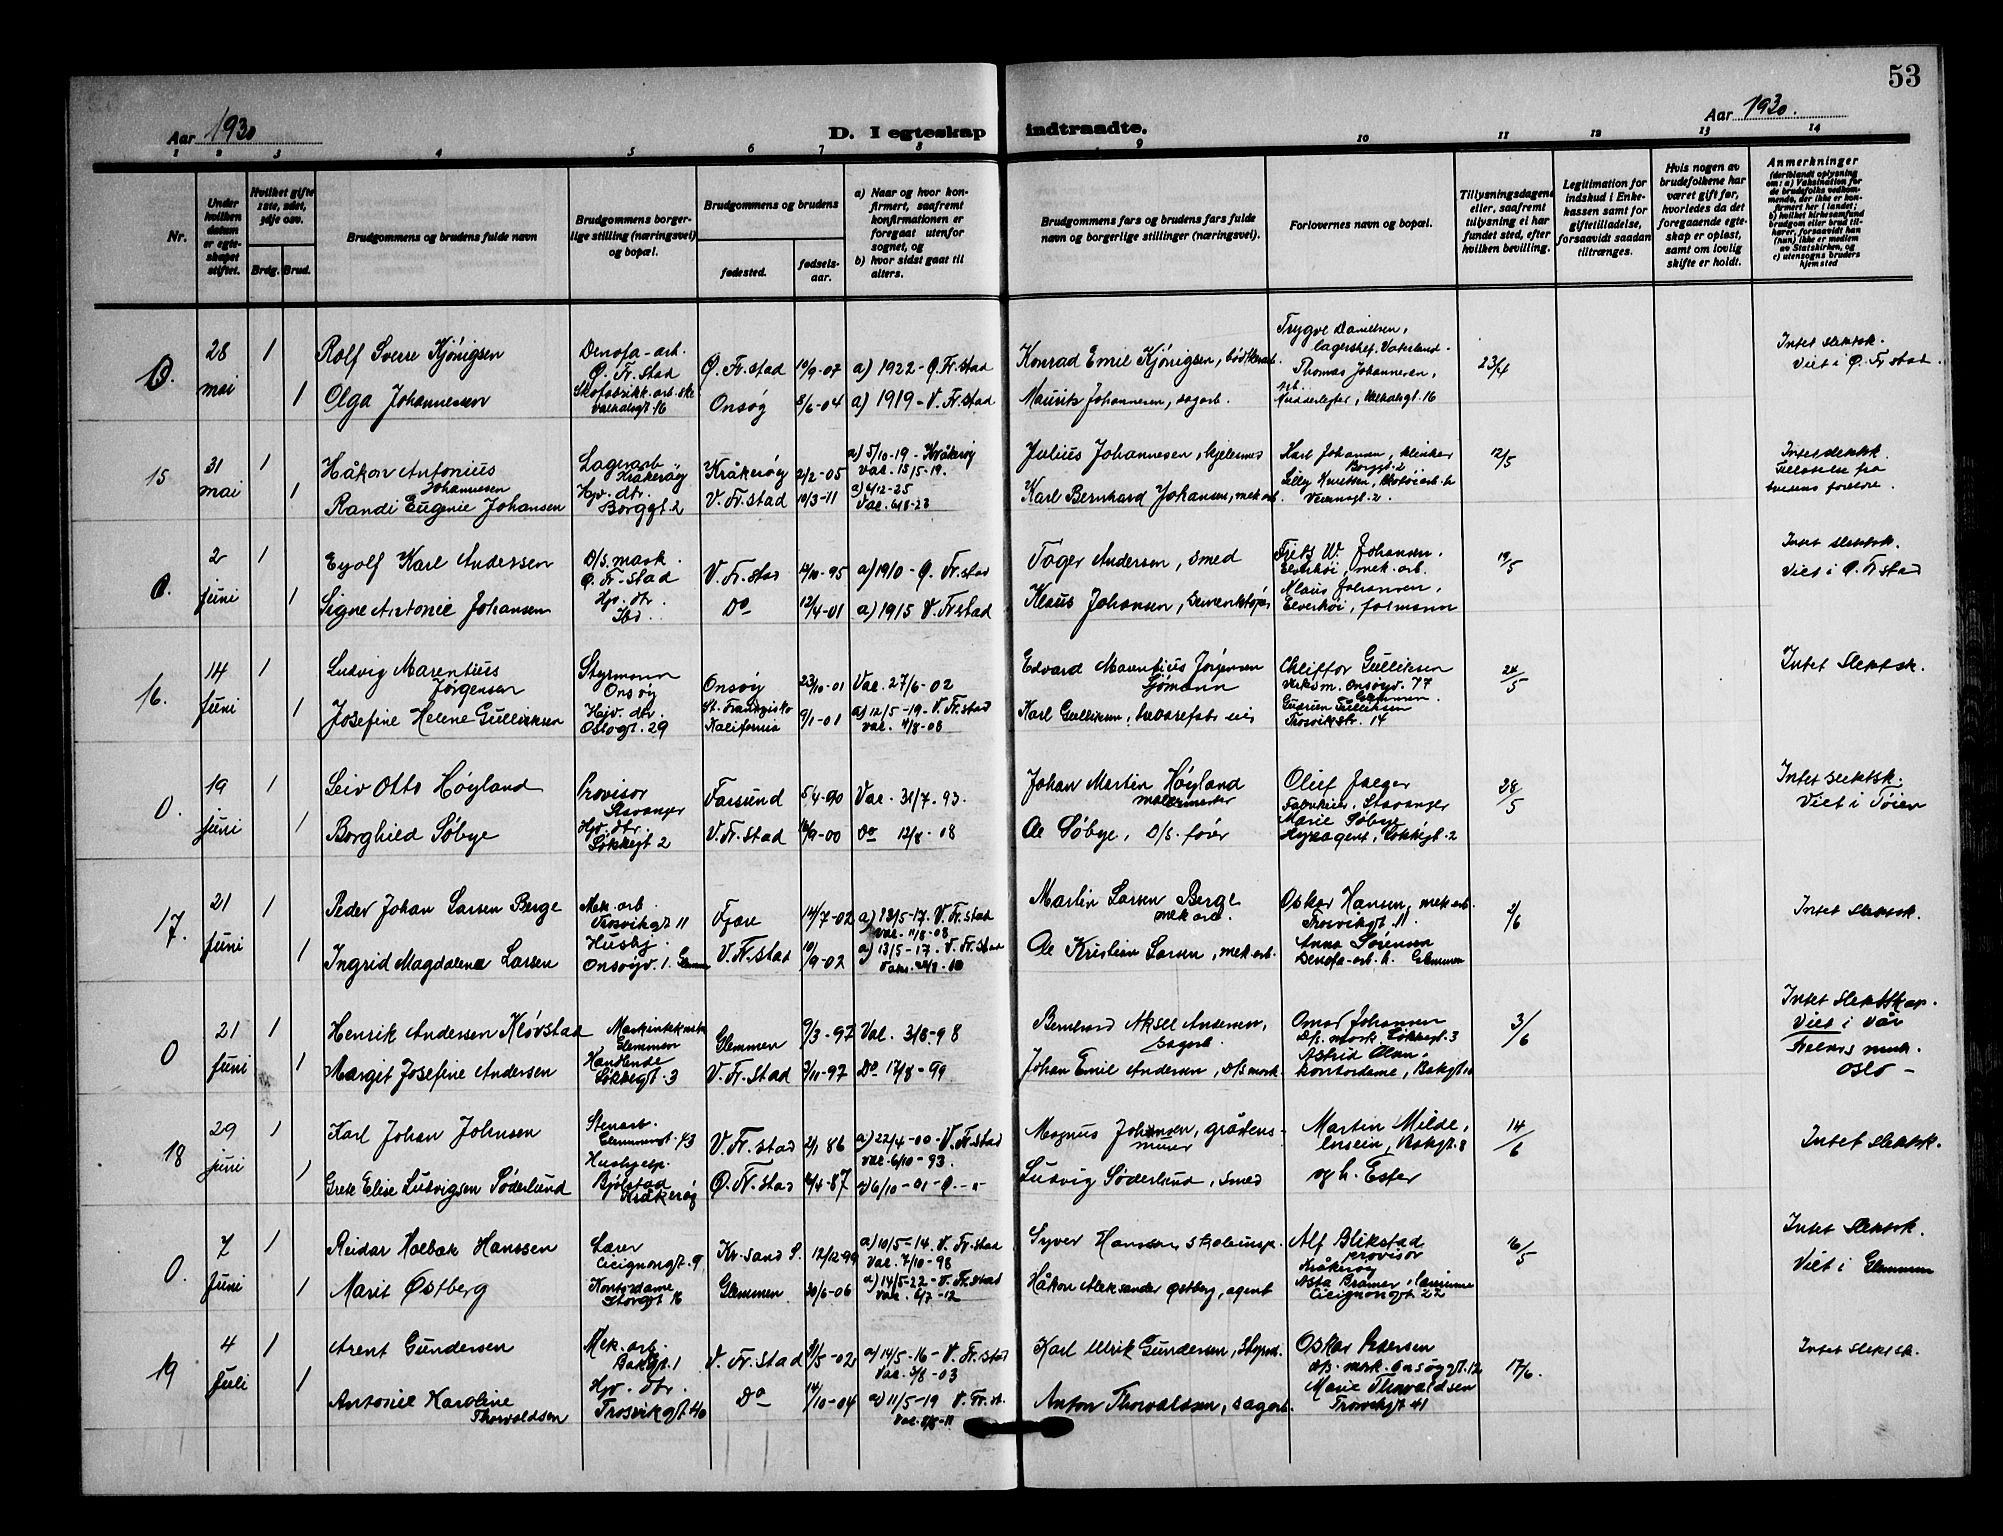 53
Aar 1930
D. I egteskap indtraadte.
Aar 1930.
1 2 3 4 5 6 7 8 9 10 11 12 13 14
Nr.
Under hvilken datum er egteskapet stiftet.
Hvilket gifte 1ste, 2det, 3dje osv.
Brdg. Brud.
Brudgommens og brudens fulde navn
Brudgommens borgerlige stilling (næringsvei) og bopæl.
Brudgommens og brudens
fødested.
fødselsaar.
a) Naar og hvor konfirmert, saafremt konfirmationen er foregaat utenfor sognet, og
b) hvor sidst gaat til alters.
Brudgommens fars og brudens fars fulde navn og borgerlige stillinger (næringsvei).
Forlovernes navn og bopæl.
Tillysningsdagene eller, saafremt tillysning ei har fundet sted, efter hvilken bevilling.
Legitimation for indskud i Enkekassen samt for giftetilladelse, forsaavidt saadan tiltrænges.
Hvis nogen av brudefolkene har været gift før, hvorledes da det foregaaende egteskap er opløst, samt om lovlig skifte er holdt.
Anmerkninger
(deriblandt oplysning om: a) Vaksination for de brudefolks vedkommende, der ikke er konfirmert her i landet;
b) hvilket kirkesamfund brudgom eller brud tilhører, forsaavidt han (hun) ikke er medlem av Statskirken, og
c) utensogns bruders hjemsted
0.
28 mai
1
Rolf Sverre Kjönigsen
Denofa-arb.
Ø. Fr. stad
Ø. Fr. stad
10/9-07
a) 1922 - Ø. Fr. stad
Konrad Emil Kjönigsen, bödtkerarb.
Trygve Danielsen,
lagershef, Vaterland
23/4
Intet slektsk.
Viet i Ø. Fr. stad.
1
Olga Johannessen
Skofabrikk-arb.ske
Onsøy
8/6-04
a) 1919 - V. Fr. stad
Mauritz Johannesen, sagarb.
Thomas Johannesen,
15
31 mai
1
Håkon Antonius
Johannesen
Lagerarb.
Kråkerøy
Kråkerøy
2/2-05
a) 5/10-19 - Kråkerøy
Vac. 15/5-19.
Julius Johannesen, hjelesmed
Karl Johansen,
Borggt. 2
12/5
Intet slektsk.
1
Randi Eugenie Johansen
Hjv. dtr.
Borggt 2
V. Fr. stad
10/3-11
a) 6/12-25
Vac. 6/8-23
Karl Bernhard Johansen, mek arb.
0.
2 juni
1
Eyolf Karl Anderssen
D/S. mask.
Ø. Fr. stad
V. Fr. stad
12/10-95
a) 1910 - Ø. Fr. stad
Tager Andersen, smed
Frits W. Johansen,
Elverhöi, mek. arb.
19/5
Intet slektsk.
Viet i Ø. Fr stad
1
Signe Antonie Johansen
Hjv. dtr.
Ibd.
Do
12/4-01
a) 1915 V. Fr stad
Klaus Johansen,
Klaus Johansen,
Elverhöi, formann
16.
14 juni
1
Ludvig Marentius
Jørgensen
Styrmann
Onsøy
Onsøy
23/10-01
Vac. 27/6-02
Edvard Marentius Jørgensen
Sjømann
Chliffor Gulliksen
Onsøyv. 77
Glemmen
24/5
Intet slektsk.
1
Josefine Helene Gulliksen
Hjv. dtr.
Oslogt. 29
St. Frangisko
Kalifornia
9/1-01
a) 12/5-19. V. Fr. stad
Vac. 4/8-08
Karl Gulliksen, trevarefabr. eier
Gudrun Gulliksen
Trosvikstr. 14
0.
19 juni
1
Leiv Otto Høyland
Provisor
Stavanger
Farsund
5/4-90
Vac. 31/7. 93.
Johan Martin Høyland
malermester
Oluf Jaeger
Stavanger
28/5
Intet slektsk.
Viet i Tøien
1
Borghild Søbye
Hjv. dtr.
Løkkegt 2
V. Fr. stad
16/9-00
Do 12/8-08
Ole Søbye, D/S. fører
Marie Søbye
Løkkegt. 2
17.
21 juni
1
Peder Johan Larsen Berge
Mek. arb.
Trosvikgt 11
Fjære
14/7-02
a) 13/5-17. V. Fr. stad
Vac. 11/8-08
Martin Larsen Berge
mek arb.
Oskar Hansen, mek arb.
Trosvikgt. 11
2/6
Intet slektsk.
1
Ingrid Magdalene Larsen
Hushj.
Onsøyv. 1. Glemm
V. Fr. stad
10/9-02
a) 13/5-17. V. Fr. stad
Ole Kristian Larsen, mek. arb.
Anna Sørensen
Denofa-arb. h. Glemmen
0
21 juni
1
Henrik Andersen Kløvstad
Glemmen
Glemmen
9/3-97
Vac. 3/8-98
Bernhard Aksel Andersen,
sagarb.
Omar Johansen
D/S. mask. Løkkegt. 3
3/6
Intet slektskap.
Viet i Vår
Frelsers menh.
Oslo -
1
Margit Josefine Andersen
Handlende
Løkkegt. 3
V. Fr. stad
3/11-97
Do 17/8-99
Johan Emil Andersen, D/S mask.
Astrid Olsen
kontordame, Bakgt. 10
18
29 juni
1
Karl Johan Johnsen
Stenarb.
Glemmengt. 43
V. Fr. stad
2/1 86
a) 22/4-00 - V. Fr. stad
Vac. 6/10-93.
Magnus Johnsen, gråstens-
murer
Martin Milde,
Bakgt. 8
14/6
Intet slektsk.
1
Grete Elise Ludvigsen Søderlund
Hushjelp.
Bjølstad
Kråkerøy
Ø. Fr. stad
12/4-87
a) 6/10-01-Ø. - " -
Ludvig Søderlund, smed
og h. Ester
0.
7 juni
1
Reidar Holbak Hanssen
Lærer
Cicignongt. 9
Kr. sand S.
12/12-99
a) 10/5-14. V. Fr. stad
Vac. 7/10-98
Syver Hanssen skoleinsp.
Alf Blikstad
provisor
Kråkerøy
16/5
Intet slektsk.
Viet i Glemmen
1
Marit Østberg
Kontordame
Storgt 16
Glemmen
20/6-06
a) 14/5-22 - V. Fr. stad
Vac. 6/7-12
Håkon Aleksander Østberg, agent
Asta Bramer,
Cicignongt. 22
19
4 juli
1
Arent Gundersen
Mek. arb.
Bakgt. 1
V. Fr. stad
31/5-02
a) 14/5-16 - V. Fr. stad
Vac. 3/8-03
Karl Ulrik Gundersen, Styrm.
Oskar Pedersen
D/S. mask. Onsøygt. 12
17/6.
Intet slektsk.
1
Antonie Karoline
Thorvaldsen
Hjv. dtr.
Trosvikgt. 40
Do
14/10-04
a) 11/5-19 V. Fr. st.
Anton Thorvaldsen, sagarb.
Marie Thorvaldsen
Trosvikgt 41